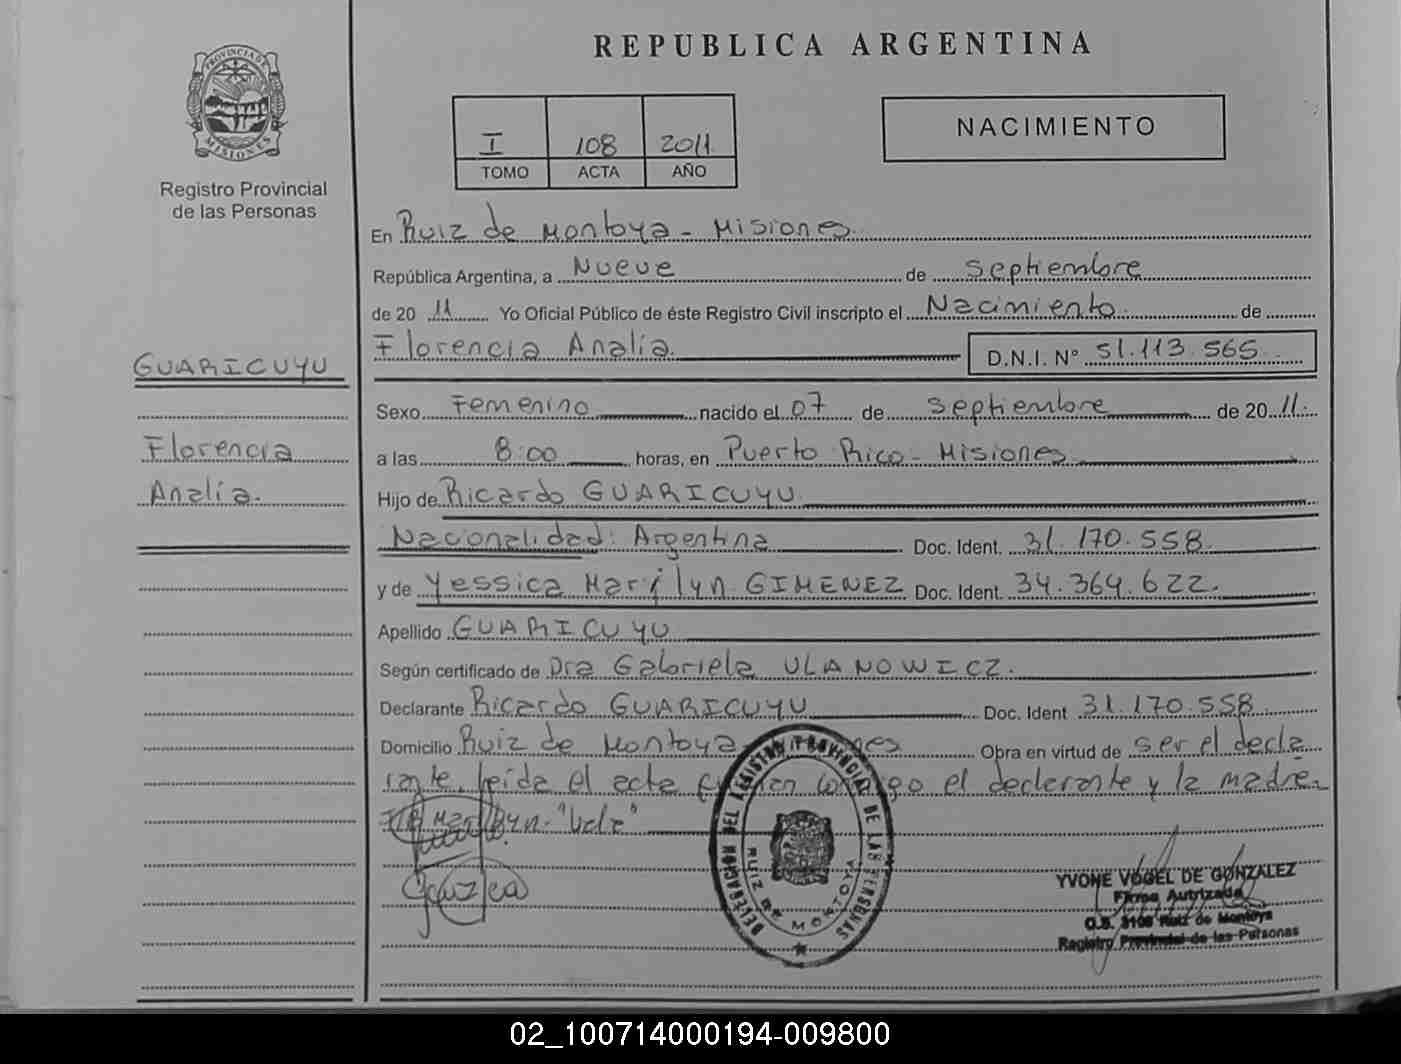 PROVINCIA DE
MISIONES
Registro Provincial
de las Personas
GUARICUYU
Florencia
Analía.
REPUBLICA ARGENTINA
I 108 2011
TOMO ACTA AÑO
NACIMIENTO
En Ruiz de Montoya - Misiones
República Argentina, a Nueve de Septiembre
de 20 11 Yo Oficial Público de éste Registro Civil inscripto el Nacimiento de
Florencia Analía. D.N.I. Nº 51.113.565
Sexo Femenino nacido el 07 de Septiembre de 20 11
a las 8:00 horas, en Puerto Rico - Misiones
Hijo de Ricardo GUARICUYU
Nacionalidad: Argentina Doc. Ident. 31.170.558
y de Yessica Marilyn GIMENEZ Doc. Ident. 34.364.622.
Apellido GUARICUYU
Según certificado de Dra Gabriela ULANOWICZ.
Declarante Ricardo GUARICUYU Doc. Ident 31.170.558
Domicilio Ruiz de Montoya Obra en virtud de ser el decla
rante. leída el acta el declarante y la madre.
Marilyn "Vale"
DELEGACION DEL REGISTRO PROVINCIAL DE LAS PERSONAS
RUIZ DE MONTOYA
YVONE VOGEL DE GONZALEZ
Firma Autrizada
O.S. 3108 Ruiz de Montoya
Registro Provincial de las Personas
02_100714000194-009800